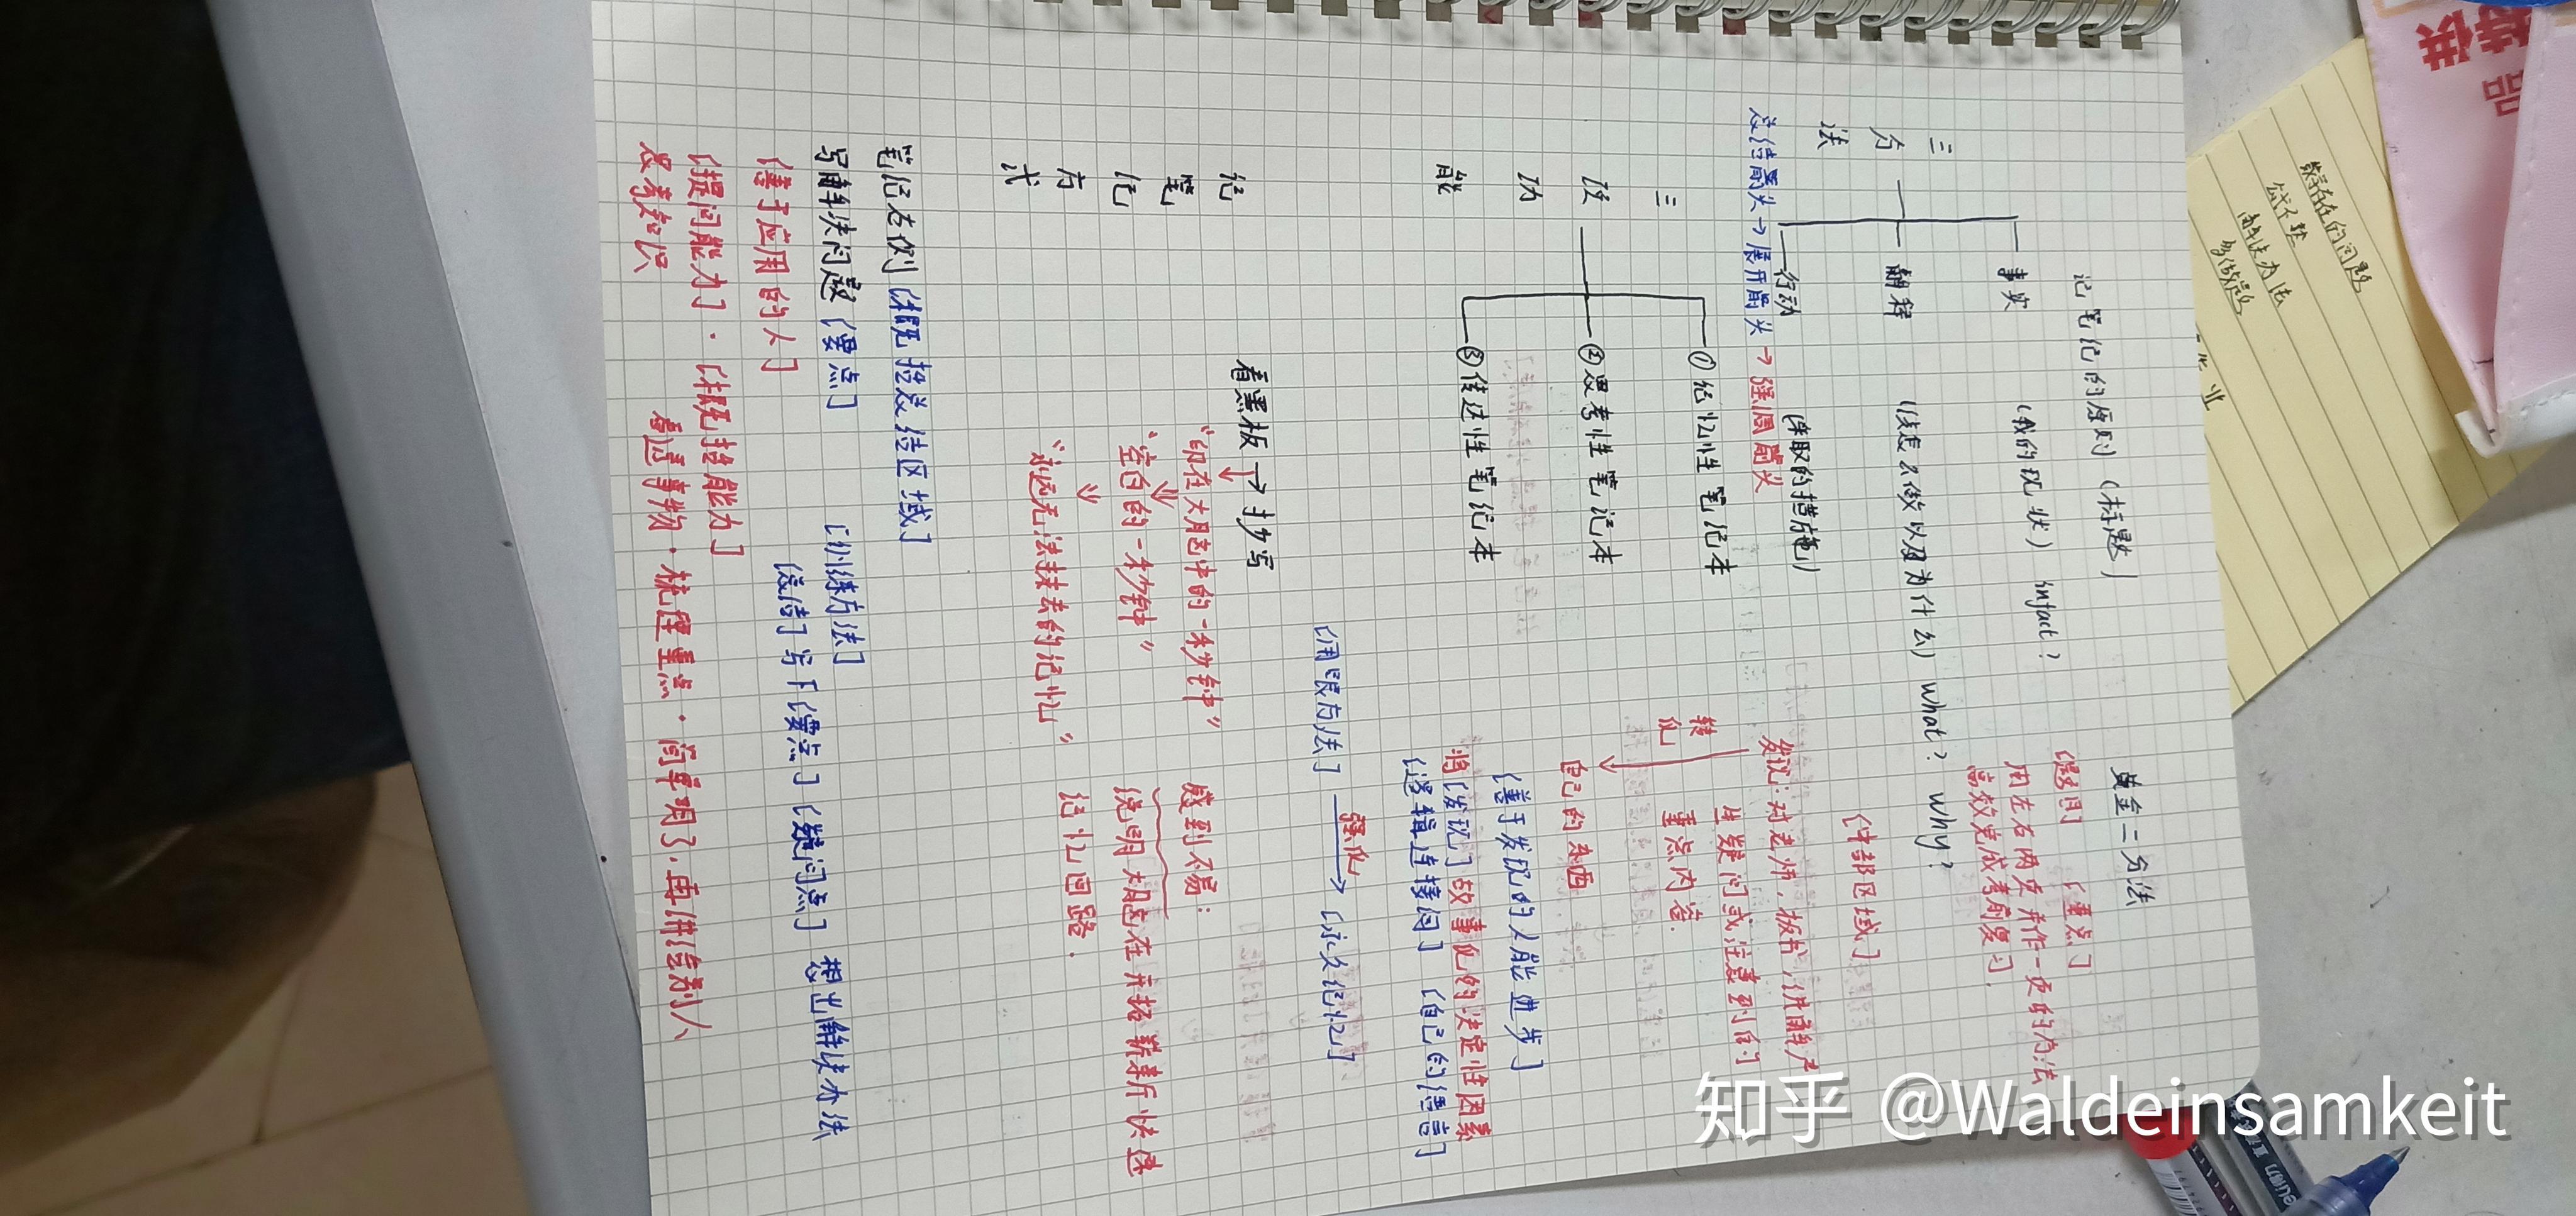 记笔记的原则（标题）
黄金三分法
事实（我的现状）infact?
解释（该怎么做以及为什么）what? why?
行动（采取的措施）
三分法
总结箭头→展开箭头→强调箭头
[重点]
用左右两页并作一页的方法
高效完成考前复习.
[中部区域]
发现:对老师,板书,讲解产
生疑问或注意到的
重点内容.
转化
自己的东西
三段功能
①记忆性笔记本
②思考性笔记本
③传达性笔记本
[善于发现的人能进步]
将[发现]故事化的决定性因素
[逻辑连接词] [自己的语言]
[用眼方法] 强化 [永久记忆]
记笔记方式
看黑板→抄写
“印在大脑中的一秒钟”
“空白的一秒钟”
“永远无法抹去的记忆”
感到不易:
说明大脑在开拓新来斤快速
记忆回路.
笔记右侧[概括总结区域]
写解决问题[要点]
[训练方法]
[总结]写下[要点][疑问点] 想出解决办法
[善于应用的人]
[提问能力]·[概括能力]
思考知识
看清事物·梳理重点·简单明了.再讲给别人
禁品
紫存在的问题
解决办法
多做题
业
知乎 @Waldeinsamkeit